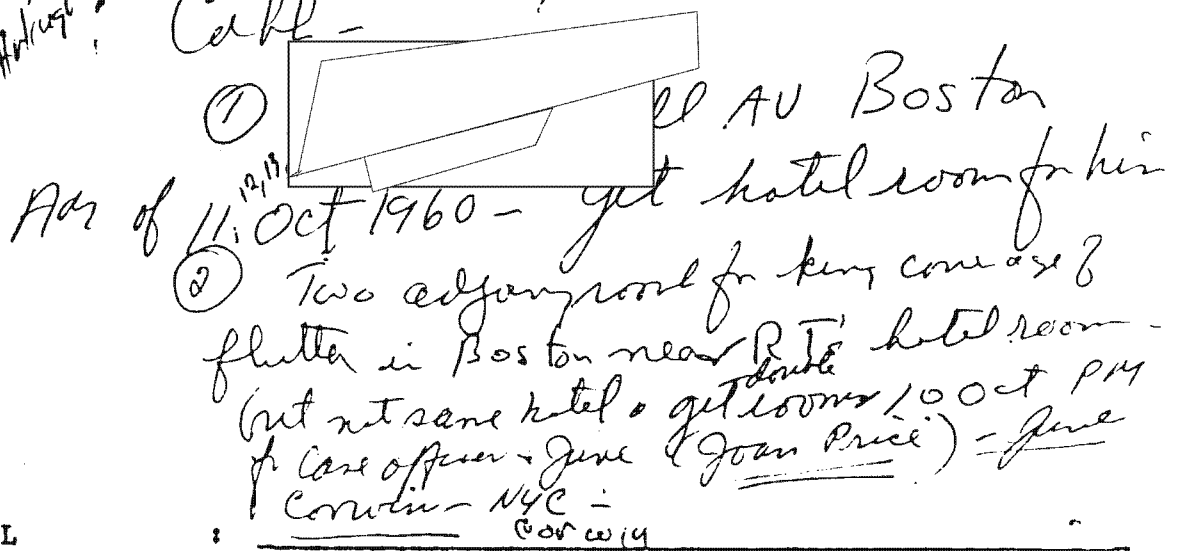 Cable -
① ell AV Boston
12, 13,
Am of 11. Oct 1960 - get hotel room for him
② Two adjoing room for king coverage &
flutter in Boston near RT's hotel room -
but not same hotel. get rooms 10 Oct PM
double
for Case officer & June (Joan Price) = June
Corwin - NYC -
L : Corwin